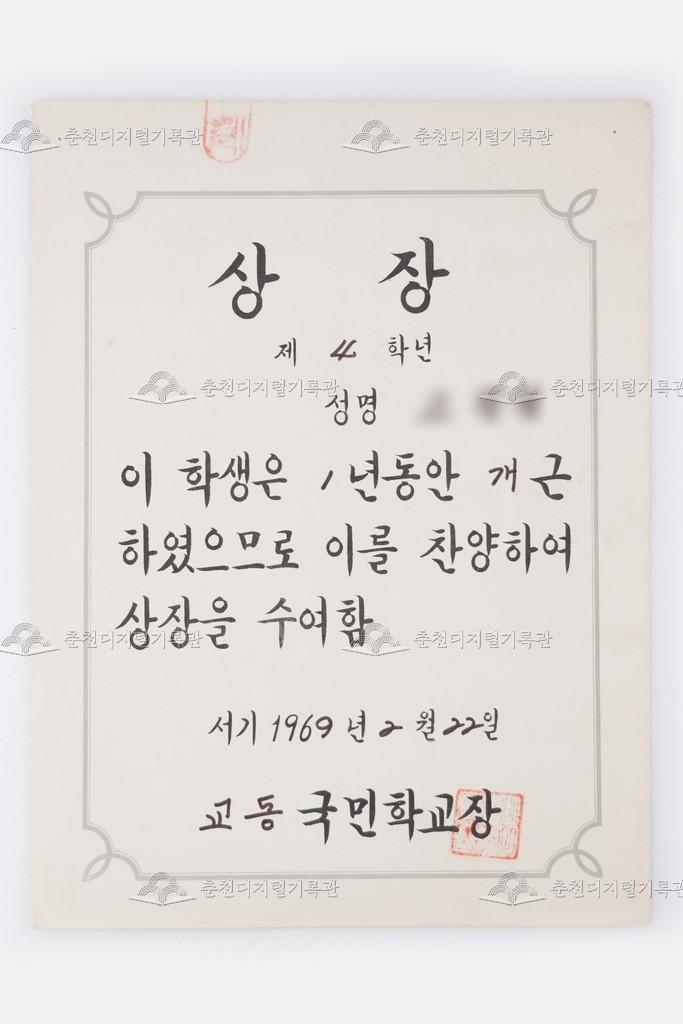 춘천디지털기록관 춘천디지털기록관
상 장
제 4 학년
춘천디지털기록관 춘천디지털기록관
성명
이 학생은 1년동안 개근
하였으므로 이를 찬양하여
상장을 수여함
춘천디지털기록관 춘천디지털기록관
서기 1969년 2월 22일
교동 국민학교장
춘천디지털기록관 춘천디지털기록관